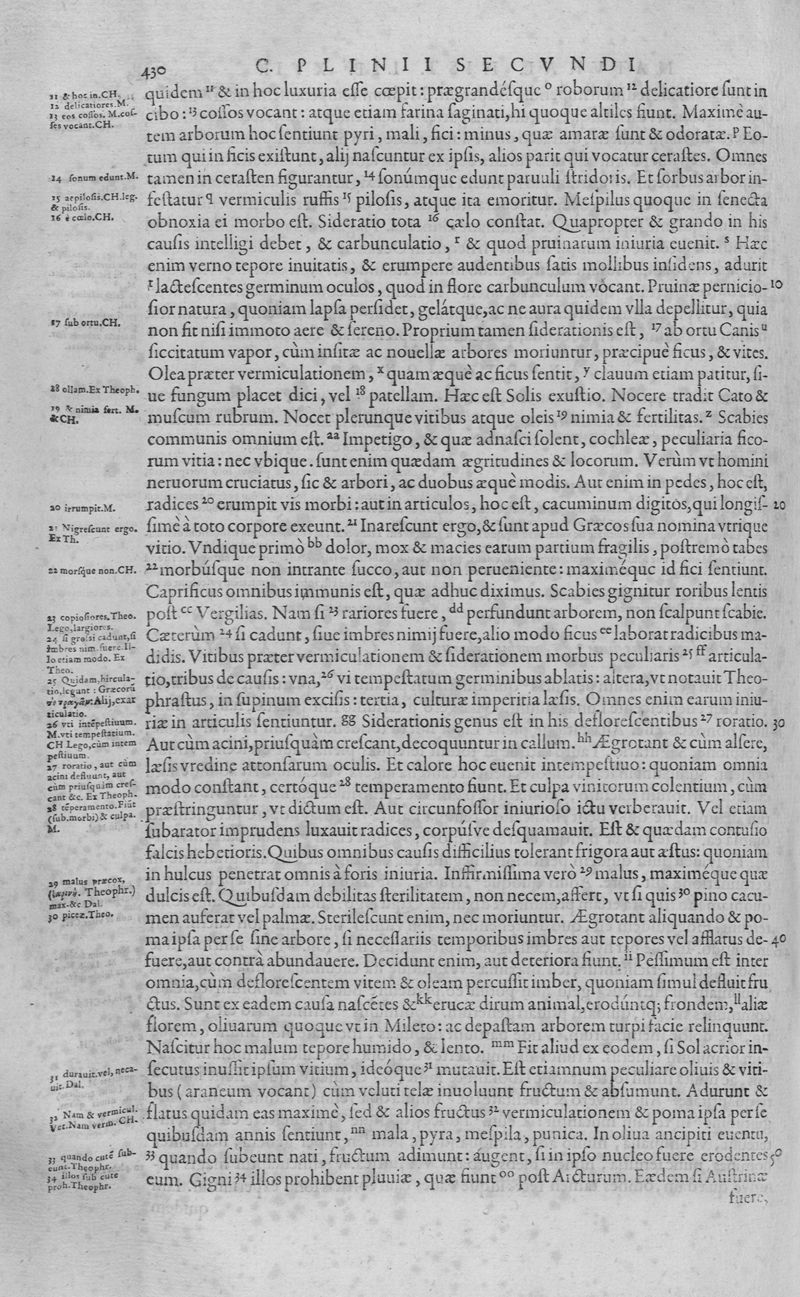 430
C. PLINII SECVNDI
quidem¹¹ & in hoc luxuria eſſe cœpit: prægrandéſque ᵒ roborum¹² delicatiore ſunt in
cibo:¹³ coſſos vocant: atque etiam farina ſaginati, hi quoque altiles fiunt. Maximè au-
tem arborum hoc ſentiunt pyri, mali, fici: minus, quæ amaræ ſunt & odoratæ.ᵖ Eo-
tum qui in ficis exiſtunt, alij naſcuntur ex ipſis, alios parit qui vocatur ceraſtes. Omnes
tamen in ceraſten figurantur,¹⁴ ſonúmque edunt paruuli ſtridoris. Et ſorbus arbor in-
feſtatur ᑫ vermiculis ruffis¹⁵ piloſis, atque ita emoritur. Meſpilus quoque in ſenecta
obnoxia ei morbo eſt. Sideratio tota ¹⁶ cælo conſtat. Quapropter & grando in his
cauſis intelligi debet, & carbunculatio, ʳ & quod pruinarum iniuria euenit. ˢ Hæc
enim verno tepore inuitatis, & erumpere audentibus ſatis mollibus inſidens, adurit
ᵗ lacteſcentes germinum oculos, quod in flore carbunculum vocant. Pruinæ pernicio- 10
ſior natura, quoniam lapſa perſidet, gelátque, ac ne aura quidem vlla depellitur, quia
non fit niſi immoto aere & ſereno. Proprium tamen ſiderationis eſt, ¹⁷ ab ortu Canis ᵘ
ſiccitatum vapor, cùm inſitæ ac nouellæ arbores moriuntur, præcipuè ficus, & vites.
Olea præter vermiculationem, ˣ quam æquè ac ficus ſentit, ʸ clauum etiam patitur, ſi-
ue fungum placet dici, vel ¹⁸ patellam. Hæc eſt Solis exuſtio. Nocere tradit Cato &
muſcum rubrum. Nocet plerunque vitibus atque oleis¹⁹ nimia & fertilitas. ᶻ Scabies
communis omnium eſt. ᵃᵃ Impetigo, & quæ adnaſci ſolent, cochleæ, peculiaria fico-
rum vitia: nec vbique. ſunt enim quædam ægritudines & locorum. Verùm vt homini
neruorum cruciatus, ſic & arbori, ac duobus æquè modis. Aut enim in pedes, hoc eſt,
radices ²⁰ erumpit vis morbi: aut in articulos, hoc eſt, cacuminum digitos, qui longiſ- 20
ſimè à toto corpore exeunt. ²¹ Inareſcunt ergo, & ſunt apud Græcos ſua nomina vtrique
vitio. Vndique primò ᵇᵇ dolor, mox & macies earum partium fragilis, poſtremò tabes
²² morbúſque non intrante ſucco, aut non perueniente: maximéque id fici ſentiunt.
Caprificus omnibus immunis eſt, quæ adhuc diximus. Scabies gignitur roribus lentis
poſt ᶜᶜ Vergilias. Nam ſi ²³ rariores fuere, ᵈᵈ perfundunt arborem, non ſcalpunt ſcabie.
Cæterùm ²⁴ ſi cadunt, ſiue imbres nimij fuere, alio modo ficus ᵉᵉ laborat radicibus ma-
didis. Vitibus præter vermiculationem & ſiderationem morbus peculiaris ²⁵ ᶠᶠ articula-
tio, tribus de cauſis: vna, ²⁶ vi tempeſtatum germinibus ablatis: altera, vt notauit Theo-
phraſtus, in ſupinum exciſis: tertia, culturæ imperitia læſis. Omnes enim earum iniu-
riæ in articulis ſentiuntur. ᵍᵍ Siderationis genus eſt in his defloreſcentibus ²⁷ roratio. 30
Aut cùm acini, priuſquàm creſcant, decoquuntur in callum. ʰʰ Ægrotant & cùm alſere,
læſis vredine attonſarum oculis. Et calore hoc euenit intempeſtiuo: quoniam omnia
modo conſtant, certóque ²⁸ temperamento fiunt. Et culpa vinitorum colentium, cùm
præſtringuntur, vt dictum eſt. Aut circunfoſſor iniurioſo ictu verberauit. Vel etiam
ſubarator imprudens luxauit radices, corpúſve deſquamauit. Eſt & quædam contuſio
falcis hebetioris. Quibus omnibus cauſis difficilius tolerant frigora aut æſtus: quoniam
in hulcus penetrat omnis à foris iniuria. Infirmiſſima verò ²⁹ malus, maximéque quæ
dulcis eſt. Quibuſdam debilitas ſterilitatem, non necem, affert, vt ſi quis ³⁰ pino cacu-
men auferat vel palmæ. Sterileſcunt enim, nec moriuntur. Ægrotant aliquando & po-
ma ipſa per ſe ſine arbore, ſi neceſſariis temporibus imbres aut tepores vel afflatus de- 40
fuere, aut contrà abundauere. Decidunt enim, aut deteriora fiunt. ⁱⁱ Peſſimum eſt inter
omnia, cùm defloreſcentem vitem & oleam percuſſit imber, quoniam ſimul defluit fru
ctus. Sunt ex eadem cauſa naſcētes & ᵏᵏ erucæ dirum animal, erodúntq; frondem, ˡˡ aliæ
florem, oliuarum quoque vt in Mileto: ac depaſtam arborem turpi facie relinquunt.
Naſcitur hoc malum tepore humido, & lento. ᵐᵐ Fit aliud ex eodem, ſi Sol acrior in-
ſecutus inuſſit ipſum vitium, ideóque ³¹ mutauit. Eſt etiamnum peculiare oliuis & viti-
bus (araneum vocant) cùm veluti telæ inuoluunt fructum & abſumunt. Adurunt &
flatus quidam eas maximè, ſed & alios fructus ³² vermiculationem & poma ipſa per ſe
quibuſdam annis ſentiunt, ⁿⁿ mala, pyra, meſpila, punica. In oliua ancipiti euentu,
³³ quando ſubeunt nati, fructum adimunt: áugent, ſi in ipſo nucleo fuere erodentes 50
eum. Gigni ³⁴ illos prohibent pluuiæ, quæ fiunt ᵒᵒ poſt Arcturum. Eædem ſi Auſtrinæ
fuere,
11 & hoc in. CH.
12 delicatiores. M.
13 eos coſſos. M. coſ-
ſes vocant. CH.
14 ſonum edunt. M.
15 ac piloſis. CH. leg.
& piloſis.
16 è cœlo. CH.
17 ſub ortu. CH.
18 ollam. Ex Theoph.
19 & nimia fert. M.
& CH.
20 irrumpit. M.
21 Nigreſcunt ergo.
Ex Th.
22 morſque non. CH.
23 copioſiores. Theo.
Lego, largiores.
24 ſi groſsi cadunt, ſi
imbres nim. fuere. Il-
lo etiam modo. Ex
Theo.
25 Quidam, hircula-
tio, legunt: Græcorū
Alij, exar
ticulatio.
26 vti intēpeſtiuum.
M. vti tempeſtatum.
CH Lego, cùm intem
peſtiuum.
27 roratio, aut cùm
acini defluunt, aut
cùm priuſquàm creſ-
cant &c. Ex Theoph.
28 tēperamento. Fiūt
(ſub. morbi) & culpa.
M.
29 malus præcox,
Theophr.)
max. &c Dal.
30 piceæ. Theo.
31 durauit. vel, neca-
uit. Dal.
32 Nam & vermicul.
Vet. Nam verm. CH.
33 quando cutē ſub-
eunt. Theophr.
34 illos ſub cute
proh. Theophr.